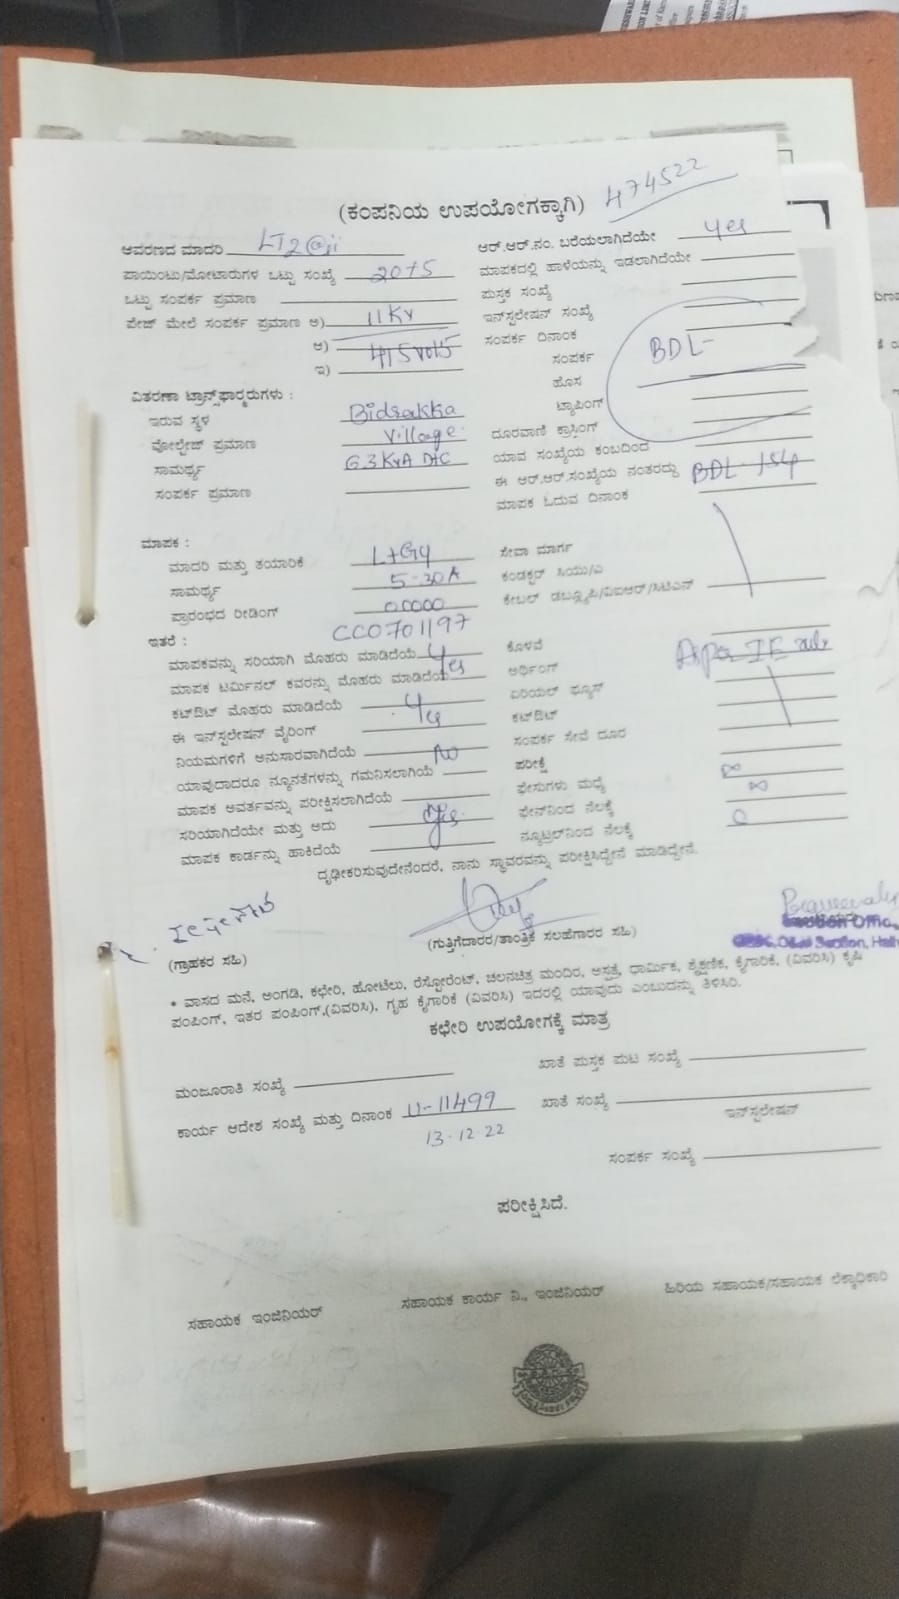 (ಕಂಪನಿಯ ಉಪಯೋಗಕ್ಕಾಗಿ) 474522
ಆವರಣದ ಮಾದರಿ LT2
ಪಾಯಿಂಟು/ಮೋಟಾರುಗಳ ಒಟ್ಟು ಸಂಖ್ಯೆ 2075
ಒಟ್ಟು ಸಂಪರ್ಕ ಪ್ರಮಾಣ
ಪೇಜ್ ಮೇಲೆ ಸಂಪರ್ಕ ಪ್ರಮಾಣ ಅ) 11Kv
ಆ) 415 volts
ಇ)
ವಿತರಣಾ ಟ್ರಾನ್ಸ್‌ಫಾರ್ಮರುಗಳು :
ಇರುವ ಸ್ಥಳ Bidrakka
ವೋಲ್ಟೇಜ್ ಪ್ರಮಾಣ Village
ಸಾಮರ್ಥ್ಯ 63 KvA
ಸಂಪರ್ಕ ಪ್ರಮಾಣ
ಆರ್.ಆರ್.ನಂ. ಬರೆಯಲಾಗಿದೆಯೇ yes
ಮಾಪಕದಲ್ಲಿ ಹಾಳೆಯನ್ನು ಇಡಲಾಗಿದೆಯೇ
ಪುಸ್ತಕ ಸಂಖ್ಯೆ
ಇನ್‌ಸ್ಟಲೇಷನ್ ಸಂಖ್ಯೆ
ಸಂಪರ್ಕ ದಿನಾಂಕ
ಸಂಪರ್ಕ BDL-
ಹೊಸ
ಟ್ಯಾಪಿಂಗ್
ದೂರವಾಣಿ ಕ್ರಾಸಿಂಗ್
ಯಾವ ಸಂಖ್ಯೆಯ ಕಂಬದಿಂದ
ಈ ಆರ್.ಆರ್.ಸಂಖ್ಯೆಯ ನಂತರದ್ದು BDL-154
ಮಾಪಕ ಓದುವ ದಿನಾಂಕ
ಮಾಪಕ :
ಮಾದರಿ ಮತ್ತು ತಯಾರಿಕೆ L+G
ಸಾಮರ್ಥ್ಯ 5-30A
ಪ್ರಾರಂಭದ ರೀಡಿಂಗ್ 00000
CC0701197
ಸೇವಾ ಮಾರ್ಗ
ಕಂಡಕ್ಟರ್ ಸಿಯು/ಎ
ಕೇಬಲ್ ಡಬ್ಲ್ಯೂಪಿ/ವಿಐಆರ್/ಸಿಟಿಎನ್
ಇತರೆ :
ಮಾಪಕವನ್ನು ಸರಿಯಾಗಿ ಮೊಹರು ಮಾಡಿದೆಯೆ
ಮಾಪಕ ಟರ್ಮಿನಲ್ ಕವರನ್ನು ಮೊಹರು ಮಾಡಿದೆಯೆ yes
ಕಟ್‌ಔಟ್ ಮೊಹರು ಮಾಡಿದೆಯೆ
ಈ ಇನ್‌ಸ್ಟಲೇಷನ್ ವೈರಿಂಗ್ yes
ನಿಯಮಗಳಿಗೆ ಅನುಸಾರವಾಗಿದೆಯೆ
ಯಾವುದಾದರೂ ನ್ಯೂನತೆಗಳನ್ನು ಗಮನಿಸಲಾಗಿಯೆ No
ಮಾಪಕ ಆವರ್ತವನ್ನು ಪರೀಕ್ಷಿಸಲಾಗಿದೆಯೆ
ಸರಿಯಾಗಿದೆಯೇ ಮತ್ತು ಅದು yes
ಮಾಪಕ ಕಾರ್ಡನ್ನು ಹಾಕಿದೆಯೆ
ಕೊಳವೆ
ಅರ್ಥಿಂಗ್ As per IE rule
ಏರಿಯಲ್ ಫ್ಯೂಸ್
ಕಟ್‌ಔಟ್
ಸಂಪರ್ಕ ಸೇವೆ ದೂರ
ಪರೀಕ್ಷೆ
ಫೇಸುಗಳು ಮಧ್ಯೆ ∞
ಫೇಸ್‌ನಿಂದ ನೆಲಕ್ಕೆ ∞
ನ್ಯೂಟ್ರಲ್‌ನಿಂದ ನೆಲಕ್ಕೆ 0
ದೃಢೀಕರಿಸುವುದೇನೆಂದರೆ, ನಾನು ಸ್ಥಾವರವನ್ನು ಪರೀಕ್ಷಿಸಿದ್ದೇನೆ ಮಾಡಿದ್ದೇನೆ.
(ಗ್ರಾಹಕರ ಸಹಿ)
(ಗುತ್ತಿಗೆದಾರರ/ತಾಂತ್ರಿಕ ಸಲಹೆಗಾರರ ಸಹಿ)
Section Office
O&M Section,
* ವಾಸದ ಮನೆ, ಅಂಗಡಿ, ಕಛೇರಿ, ಹೋಟೆಲು, ರೆಸ್ಟೋರೆಂಟ್, ಚಲನಚಿತ್ರ ಮಂದಿರ, ಆಸ್ಪತ್ರೆ, ಧಾರ್ಮಿಕ, ಶೈಕ್ಷಣಿಕ, ಕೈಗಾರಿಕೆ, (ವಿವರಿಸಿ) ಕೃಷಿ
ಪಂಪಿಂಗ್, ಇತರ ಪಂಪಿಂಗ್,(ವಿವರಿಸಿ), ಗೃಹ ಕೈಗಾರಿಕೆ (ವಿವರಿಸಿ) ಇದರಲ್ಲಿ ಯಾವುದು ಎಂಬುದನ್ನು ತಿಳಿಸಿರಿ.
ಕಛೇರಿ ಉಪಯೋಗಕ್ಕೆ ಮಾತ್ರ
ಮಂಜೂರಾತಿ ಸಂಖ್ಯೆ
ಖಾತೆ ಪುಸ್ತಕ ಪುಟ ಸಂಖ್ಯೆ
ಕಾರ್ಯ ಆದೇಶ ಸಂಖ್ಯೆ ಮತ್ತು ದಿನಾಂಕ 11-11499
13-12-22
ಖಾತೆ ಸಂಖ್ಯೆ
ಇನ್‌ಸ್ಟಲೇಷನ್
ಸಂಪರ್ಕ ಸಂಖ್ಯೆ
ಪರೀಕ್ಷಿಸಿದೆ.
ಸಹಾಯಕ ಇಂಜಿನಿಯರ್
ಸಹಾಯಕ ಕಾರ್ಯ ನಿ., ಇಂಜಿನಿಯರ್
ಹಿರಿಯ ಸಹಾಯಕ/ಸಹಾಯಕ ಲೆಕ್ಕಾಧಿಕಾರಿ